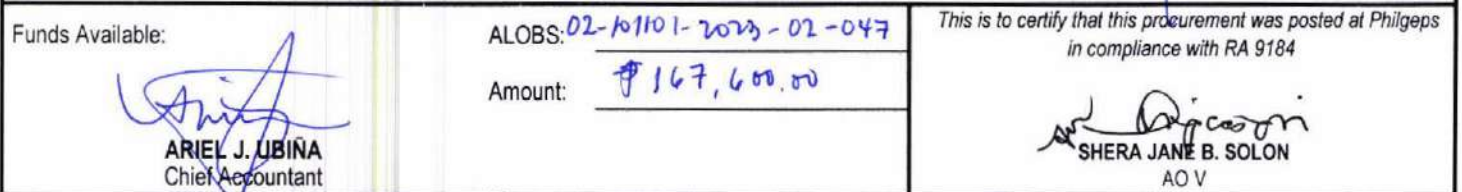 Funds Available:
ARIEL J. UBIÑA
Chief Accountant
ALOBS: 02-101101-2023-02-047
Amount: ₱167,600.00
This is to certify that this procurement was posted at Philgeps
in compliance with RA 9184
SHERA JANE B. SOLON
AO V